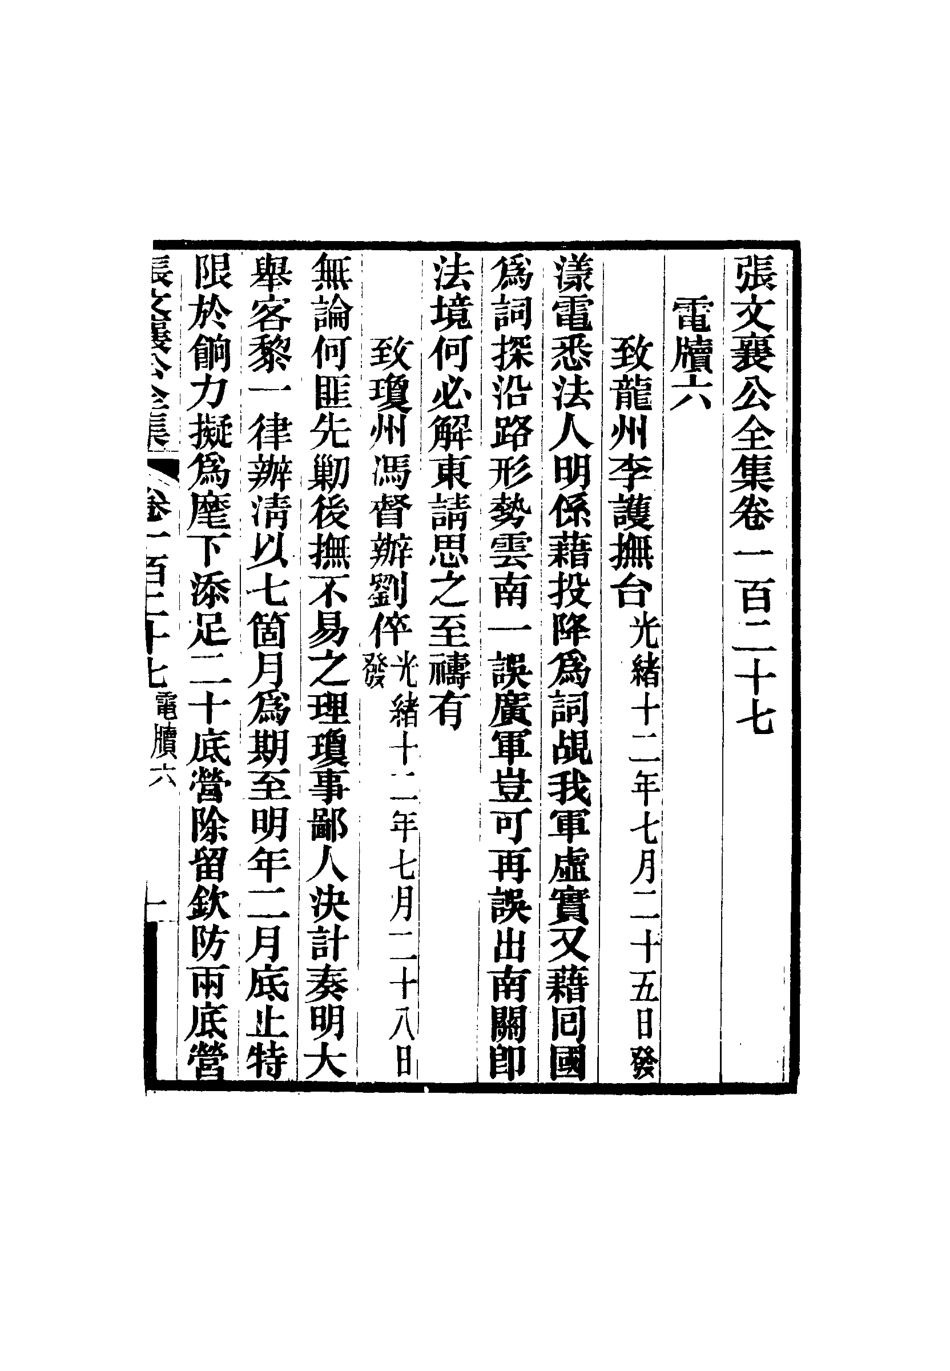 張文襄公全集卷一百二十七
電牘六
致龍州李護撫台光緒十二年七月二十五日發
漾電悉法人明係藉投降爲詞覘我軍虛實又藉回國
爲詞探沿路形勢雲南一誤廣軍豈可再誤出南關卽
法境何必解東請思之至禱有
致瓊州馮督辦劉倅光緒十二年七月二十八日發
無論何匪先勦後撫不易之理瓊事鄙人決計奏明大
舉客黎一律辦淸以七箇月爲期至明年二月底止特
限於餉力擬爲麾下添足二十底營除留欽防兩底營
張文襄公全集 卷一百二十七 電牘六 一